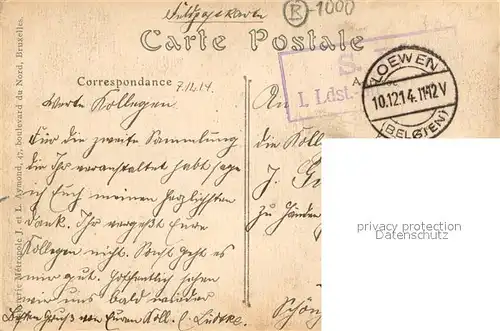 Feldpostkarte
K-1000
Carte Postale
Correspondance 7.12.14.
Werte Kollegen
Für die zweite Sammlung
die Ihr veranstaltet habt sage
ich Euch meinen herzlichsten
Dank. Ihr vergeßt Eure
Kollegen nicht. Sonst geht es
mir gut. Hoffentlich sehen
wir uns bald wieder
Besten Gruß von Euren Koll.
An
die Koll
J. G
zu Händen
Schön
S.
I. Ldst.
LOEWEN
10.12.14. 11-12 V
(BELGIEN)
Métropole J. et L. Aymond, 47, boulevard du Nord, Bruxelles.
privacy protection
Datenschutz